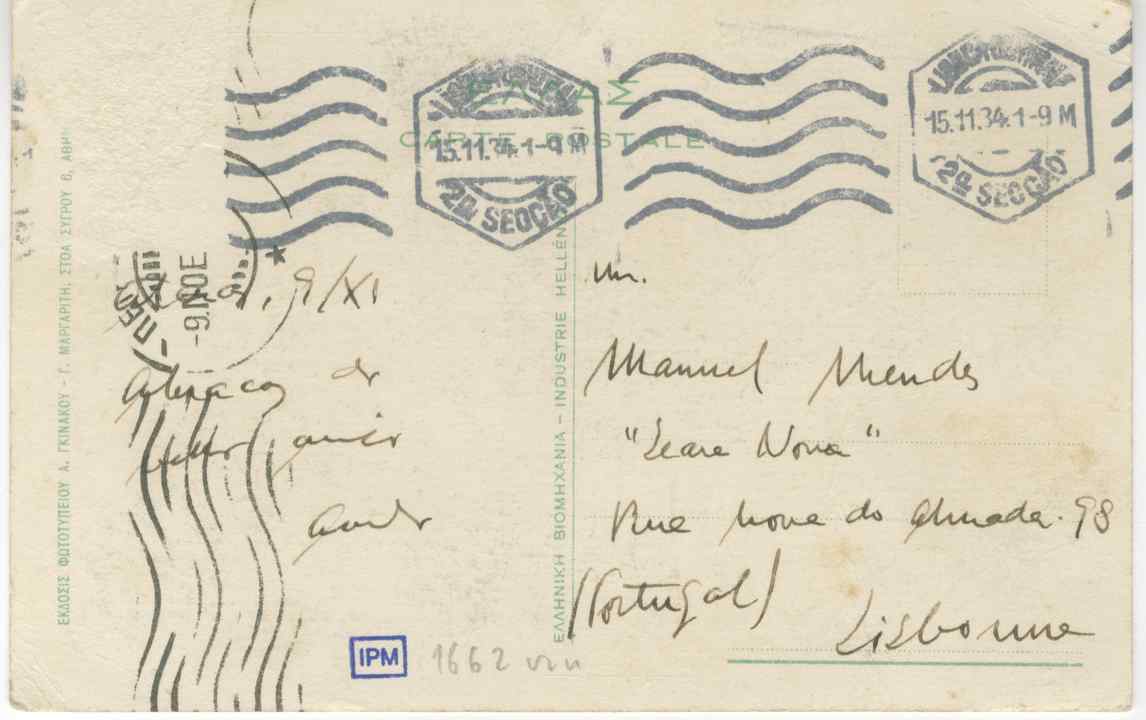 ΕΛΛΑΣ
CARTE POSTALE
LISBOA CENTRAL
15.11.34.1-9 M
2ª SECÇÃO
15.11.34.1-9 M
2ª SECÇÃO
-9.ΝΟΕ
9/XI
Abraços do
velho amigo
Mr.
Manuel Mendes
"Seara Nova"
Rua Nova do Almada. 98
(Portugal)
Lisbonne
ΕΚΔΟΣΙΣ ΦΩΤΟΤΥΠΕΙΟΥ Α. ΓΚΙΝΑΚΟΥ - Γ. ΜΑΡΓΑΡΙΤΗ. ΣΤΟΑ ΣΥΓΡΟΥ 6, ΑΘΗ
ΕΛΛΗΝΙΚΗ ΒΙΟΜΗΧΑΝΙΑ – INDUSTRIE HELLEN
IPM
1662